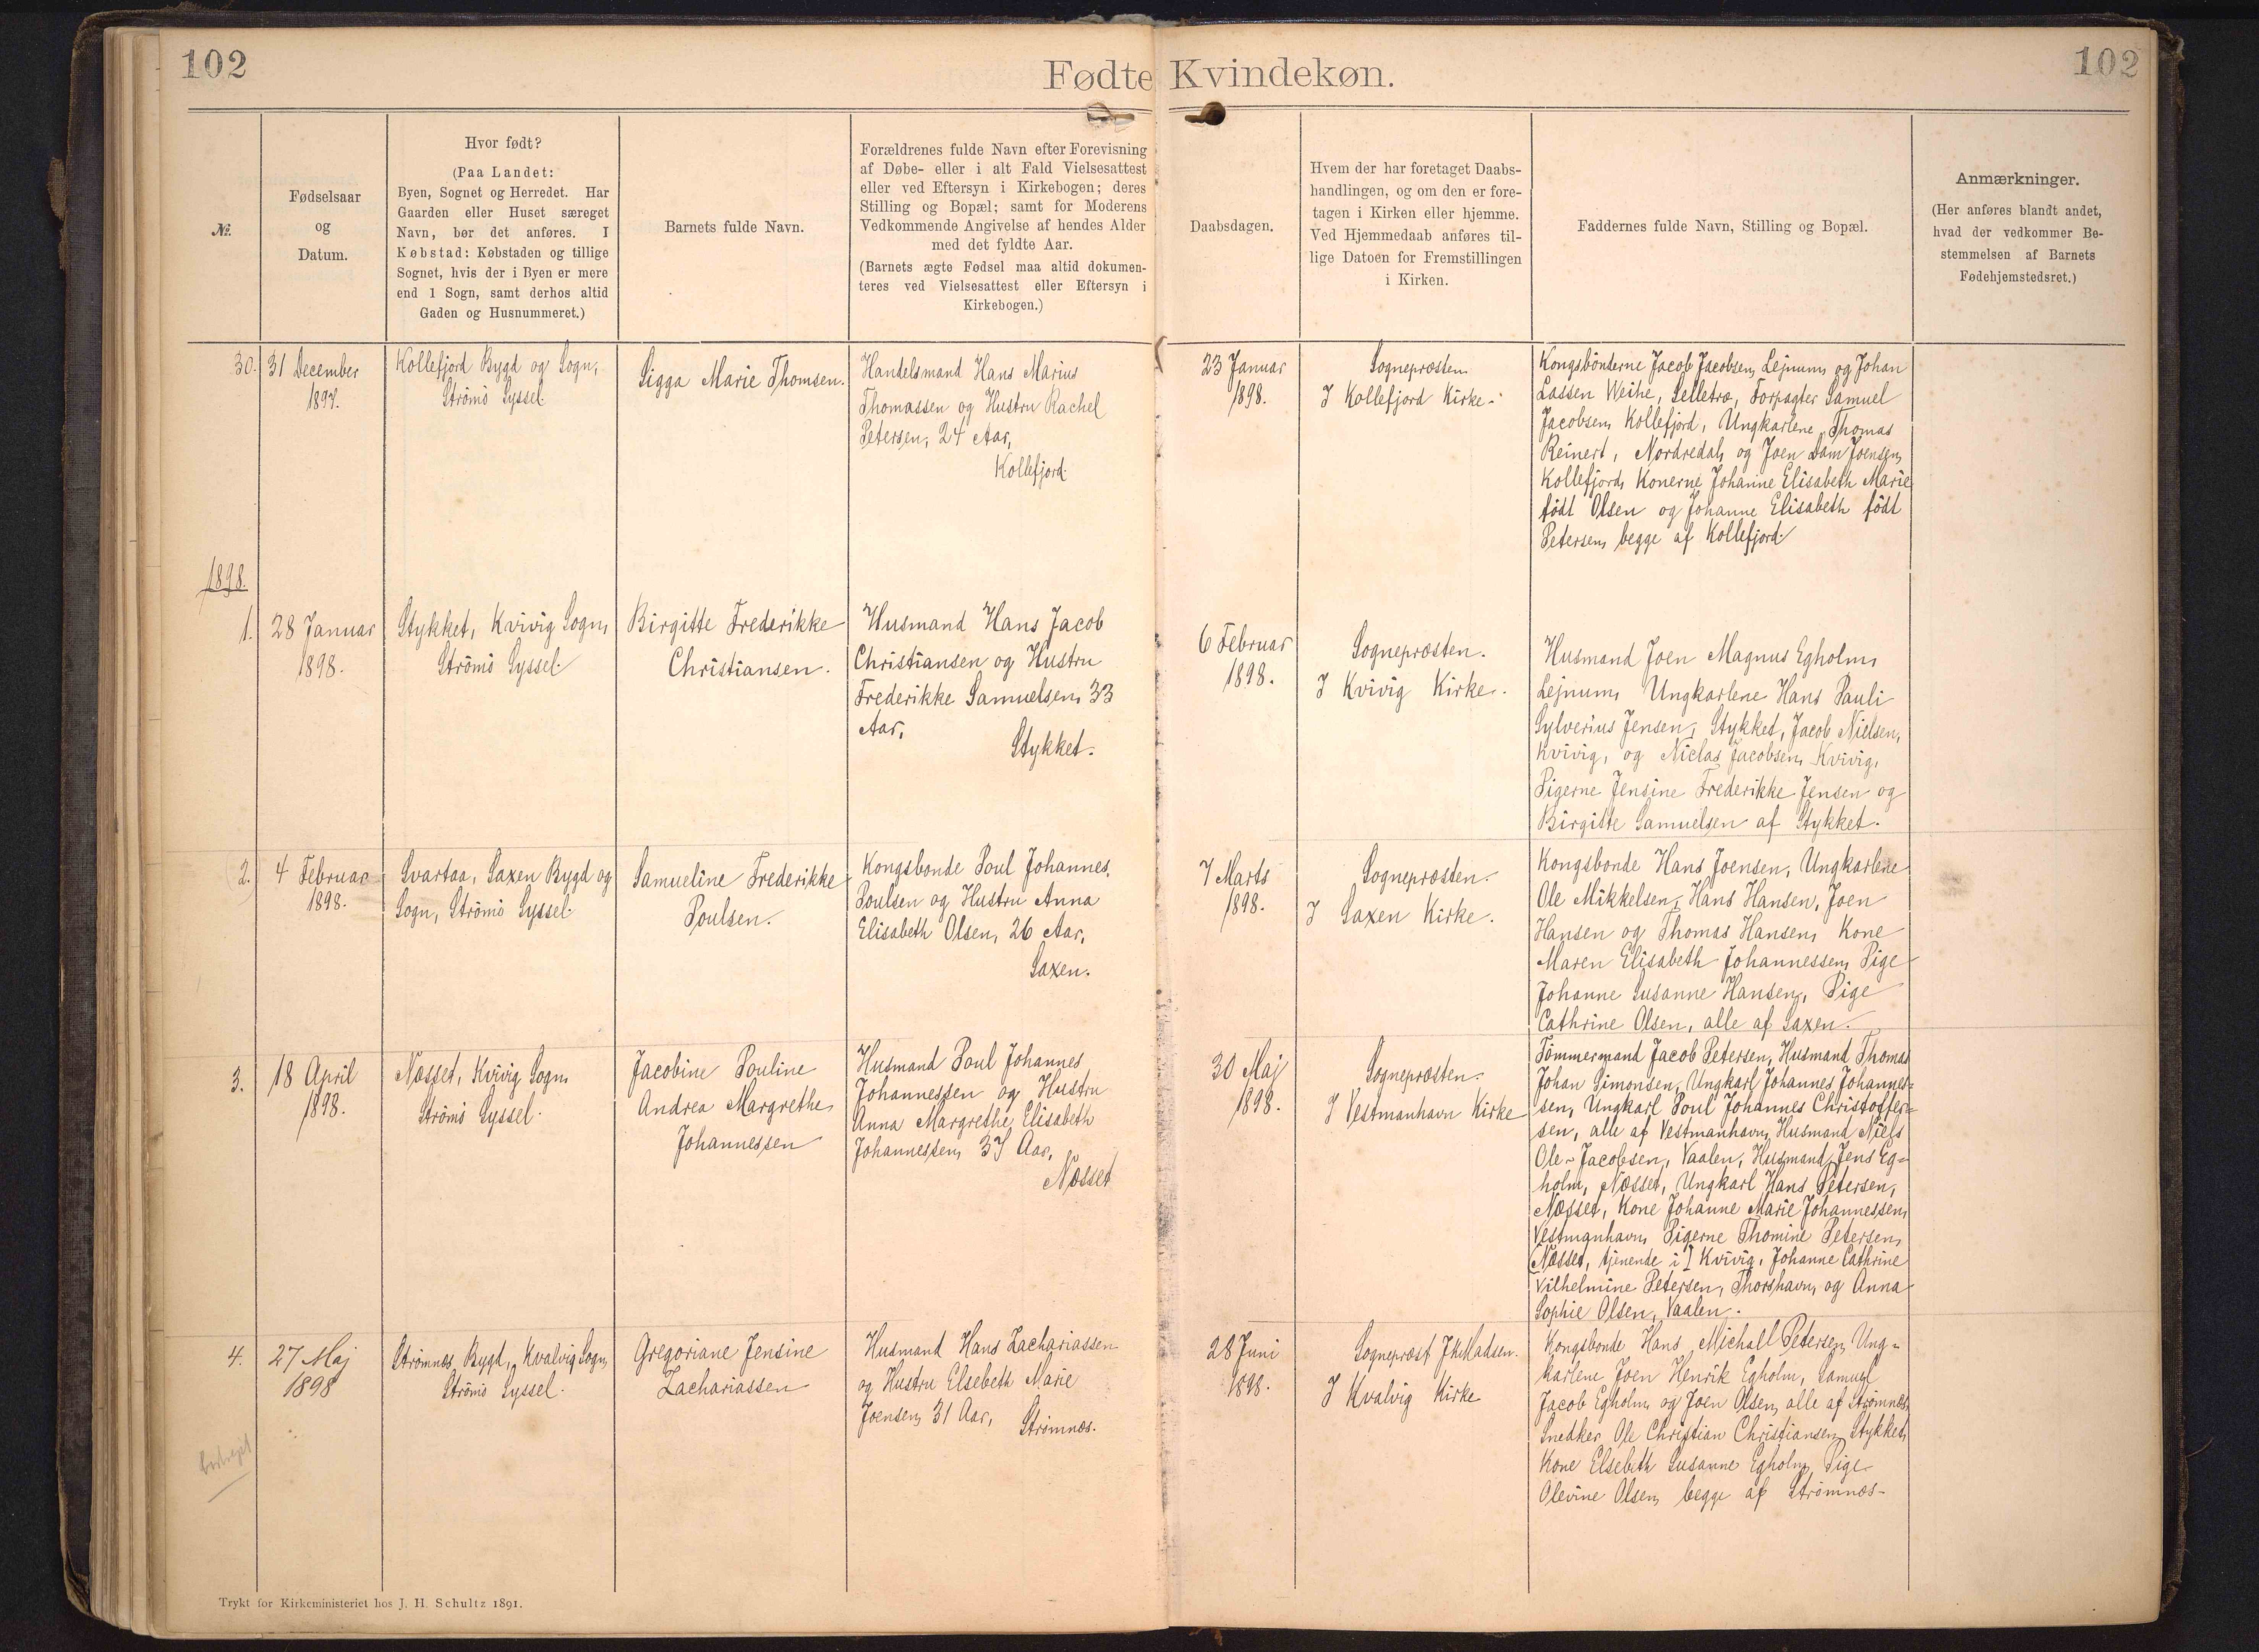 102
102
Fødte Kvindekøn.
№.
Fødselsaar
og
Datum.
Hvor født?
(Paa Landet:
Byen, Sognet og Herredet. Har
Gaarden eller Huset særeget
Navn, bør det anføres. I
Købstad: Købstaden og tillige
Sognet, hvis der i Byen er mere
end 1 Sogn, samt derhos altid
Gaden og Husnummeret.)
Barnets fulde Navn.
Forældrenes fulde Navn efter Forevisning
af Døbe- eller i alt Fald Vielsesattest
eller ved Eftersyn i Kirkebogen; deres
Stilling og Bopæl; samt for Moderens
Vedkommende Angivelse af hendes Alder
med det fyldte Aar.
(Barnets ægte Fødsel maa altid dokumen-
teres ved Vielsesattest eller Eftersyn i
Kirkebogen.)
Daabsdagen.
Hvem der har foretaget Daabs-
handlingen, og om den er fore-
tagen i Kirken eller hjemme.
Ved Hjemmedaab anføres til-
lige Datoen for Fremstillingen
i Kirken.
Faddernes fulde Navn, Stilling og Bopæl.
Anmærkninger.
(Her anføres blandt andet,
hvad der vedkommer Be-
stemmelsen af Barnets
Fødehjemstedsret.)
30.
31 December
1897.
Kollefjord Bygd og Sogn,
Strömö Syssel.
Sigga Marie Thomsen.
Handelsmand Hans Marius
Thomassen og Hustru Rachel
Petersen, 24 Aar,
Kollefjord.
23 Januar
1898.
Sognepræsten
I Kollefjord Kirke.
Kongsbönderne Jacob Jacobsen, Lejnum, og Johan
Lassen Weihe, Selletræ, Forpagter Samuel
Jacobsen, Kollefjord, Ungkarlene Thomas
Reinert, Nordredal, og Joen Dam Joensen,
Kollefjord, Konerne Johanne Elisabeth Marie
födt Olsen og Johanne Elisabeth födt
Petersen, begge af Kollefjord.
1898.
1.
28 Januar
1898.
Stykket, Kvivig Sogn,
Strömö Syssel.
Birgitte Frederikke
Christiansen.
Husmand Hans Jacob
Christiansen og Hustru
Frederikke Samuelsen, 33
Aar,
Stykket.
6 Februar
1898.
Sognepræsten.
I Kvivig Kirke.
Husmand Joen Magnus Egholm,
Lejnum, Ungkarlene Hans Pauli
Sylverius Jensen, Stykket, Jacob Nielsen,
Kvivig, og Niclas Jacobsen, Kvivig,
Pigerne Jensine Frederikke Jensen og
Birgitte Samuelsen af Stykket.
2.
4 Februar
1898.
Svartaa, Saxen Bygd og
Sogn, Strömö Syssel.
Samueline Frederikke
Poulsen.
Kongsbonde Poul Johannes
Poulsen og Hustru Anna
Elisabeth Olsen, 26 Aar,
Saxen.
7 Marts
1898.
Sognepræsten.
I Saxen Kirke.
Kongsbonde Hans Joensen, Ungkarlene
Ole Mikkelsen, Hans Hansen, Joen
Hansen og Thomas Hansen, Kone
Maren Elisabeth Johannessen, Pige
Johanne Susanne Hansen, Pige
Cathrine Olsen, alle af Saxen.
3.
18 April
1898.
Næsset, Kvivig Sogn
Strömö Syssel.
Jacobine Pouline
Andrea Margrethe
Johannessen
Husmand Poul Johannes
Johannessen og Hustru
Anna Margrethe Elisabeth
Johannessen, 37 Aar,
Næsset
30 Maj
1898.
Sognepræsten.
I Vestmanhavn Kirke
Tömmermand Jacob Petersen, Husmand Thomas
Johan Simonsen, Ungkarl Johannes Johannes=
sen, Ungkarl Poul Johannes Christoffer=
sen, alle af Vestmanhavn, Husmand Niels
Ole Jacobsen, Vaalen, Husmand Jens Eg=
holm, Næsset, Ungkarl Hans Petersen,
Næsset, Kone Johanne Marie Johannessen,
Vestmanhavn, Pigerne Thomine Petersen,
Næsset, tjenende i Kvivig, Johanne Cathrine
Vilhelmine Petersen, Thorshavn, og Anna
Sophie Olsen, Vaalen.
4.
27 Maj
1898
Strömnæs Bygd, Kvalvig Sogn
Strömö Syssel.
Gregoriane Jensine
Zachariassen
Husmand Hans Zachariassen
og Hustru Elsebeth Marie
Joensen, 31 Aar,
Strömnæs.
28 Juni
1898.
Sognepræst Madsen.
I Kvalvig Kirke
Kongsbonde Hans Michall Petersen, Ung-
karlene Joen Henrik Egholm, Samuel
Jacob Egholm, og Joen Olsen, alle af Strömnæs,
Snedker Ole Christian Christiansen, Stykket,
Kone Elsebeth Susanne Egholm, Pige
Olevine Olsen, begge af Strömnæs-
Trykt for Kirkeministeriet hos J. H. Schultz 1891.